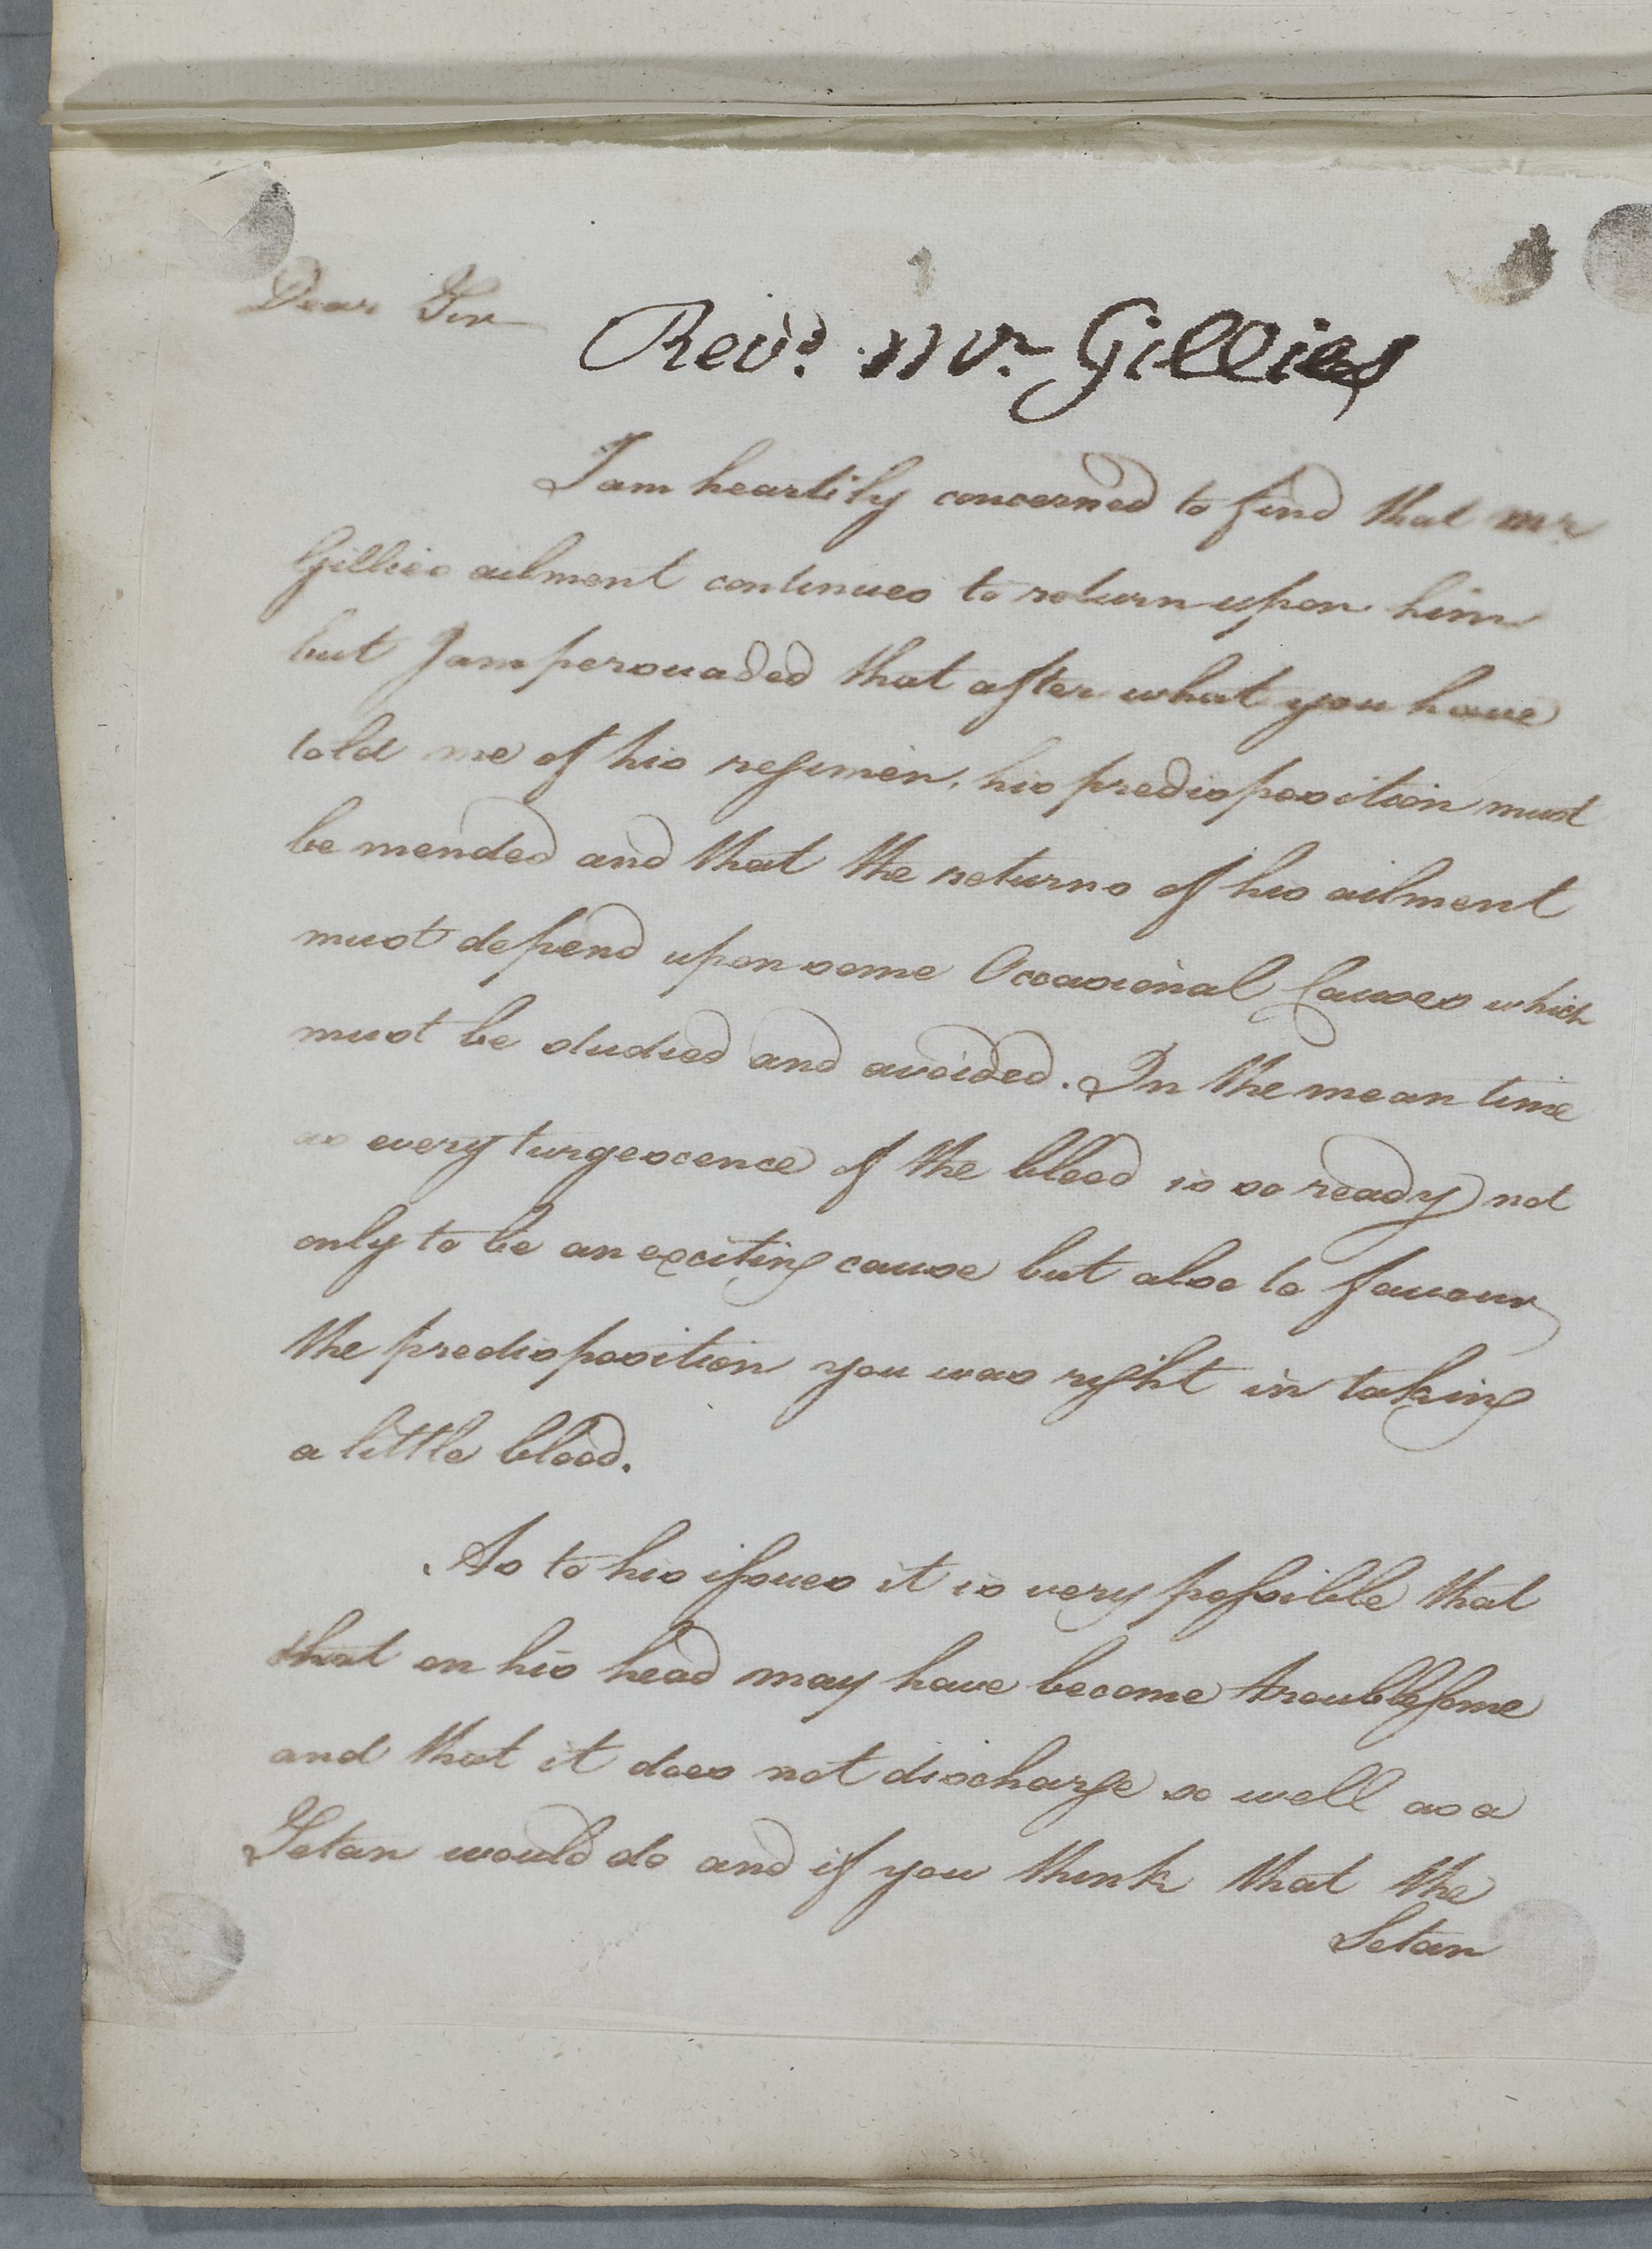 Dear Sir
Revd. Mr. Gillies
I am heartily concerned to find that Mr
Gillies ailment continues to return upon him
but I am persuaded that after what you have
told me of his regimen, his predisposition must
be mended and that the returns of his ailment
must depend upon some Occasional Causes which
must be studied and avoided. In the mean time
as every turgescence of the blood is so ready not
only to be an exciting cause but also to favour
the predisposition you was right in taking
a little blood.
As to his issues it is very possible that
that on his head may have become troublesome
and that it does not discharge so well as a
Setan would do and if you think that the
Setan